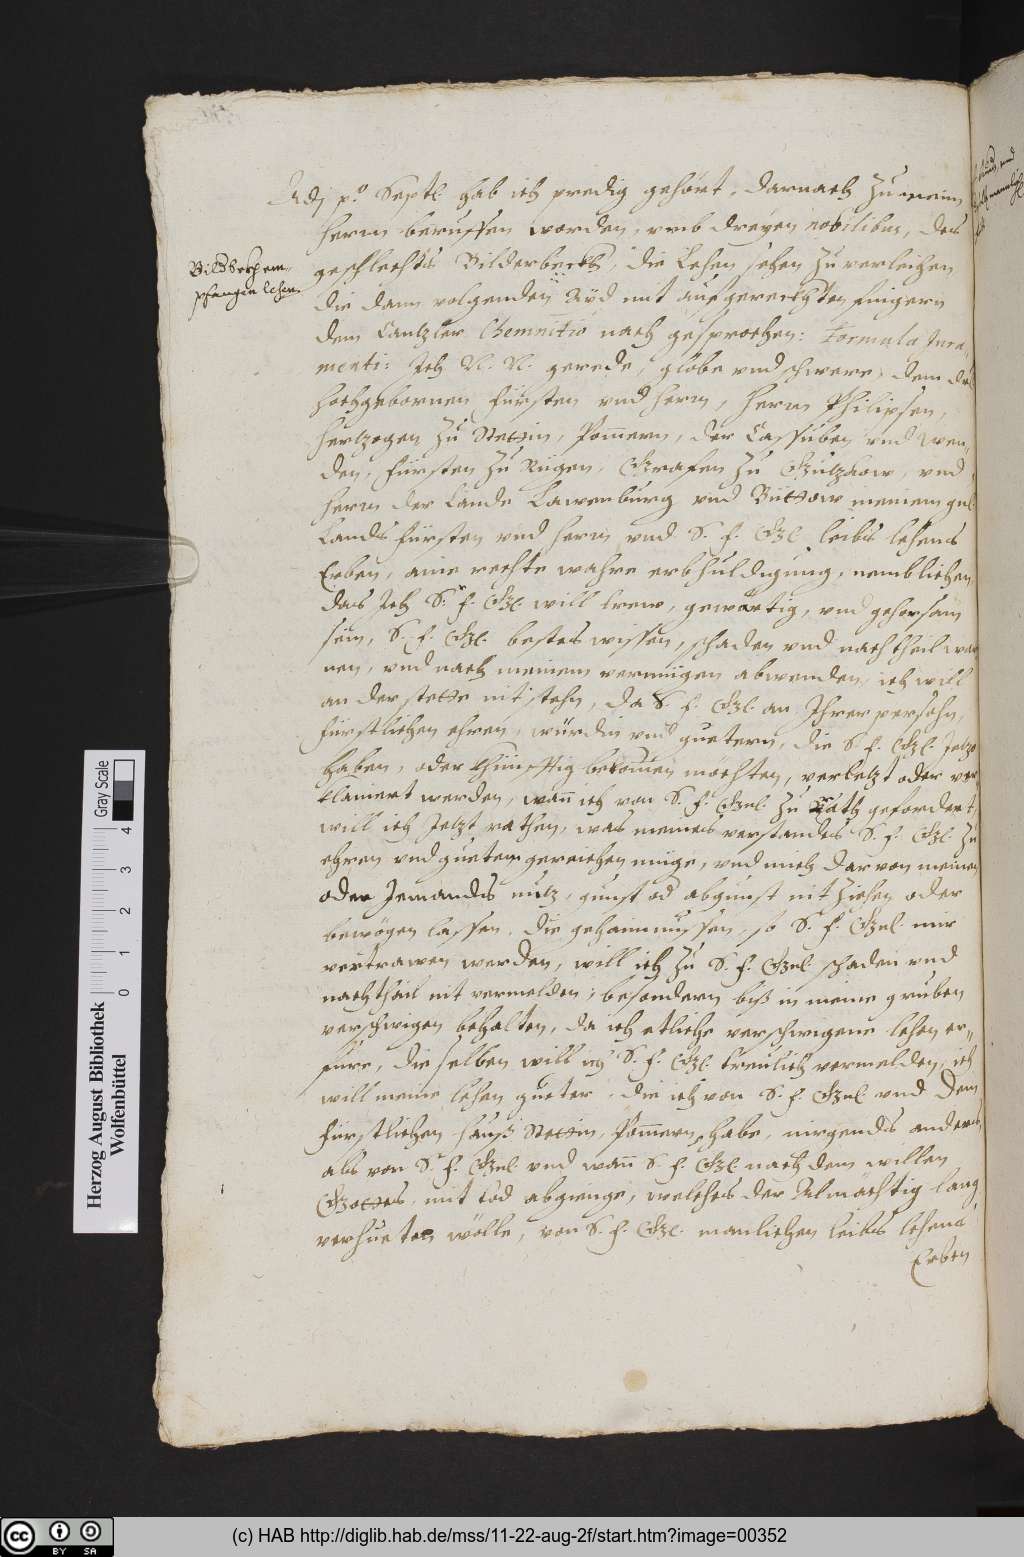 Adj p.º Septl. hab ich predig gehört, darnach zu meim
herrn beruffen worden, vmb dreyen nobilibus, des
Bilderbeckh em-
pfangen lehen
geschlechts Bilderbeckh, die Lehen sehen zu verleichen
die dann volgenden Ayd mit aufgereckhten fingern
dem Cantzler Chemnitio nach gesprochen: Formula Jura-
menti: Ich N. N. gerede, globe vnd schwere, dem
hochgebornen fürsten vnd herrn, herrn Philipsen,
hertzogen zu Stettin, Pom̄ern, der Cassuben vnd Wen-
den, fürsten zu Rügen, Grafen zu Gützkow, vnd
herrn der Lande Lawenburg vnd Büttow meinem gnl.
Lands fürsten vnd herrn vnd S. f. Gl. leibs lehens
Erben, aine rechte wahre erbhuldigung, nemblichen
das Ich S. f. Gl. will trew, gewärtig, vnd gehorsam
sein, S. f. Gl. bestes wissen, schaden vnd nachtheil war
nen, vnd nach meinem vermügen abwenden, ich will
an der stette nit stehn, da S. f. Gl. an Ihrer persohn,
fürstlichen ehren, würdin vnd guetern, die S. f. Gl. Jetzo
haben, oder khünfftig bekom̄en möchten, verletzt oder ver
klainert werden, wan̄ ich von S. f. Gnl. zu Rath gefordert,
will ich Jetzt rathen, was meines verstandes S. f. Gl. zu
ehren vnd guetem gereichen müge, vnd mich darvon meinen
oder Jemandts nutz, gunst od abgunst nit ziehen oder
bewögen lassen. die gehaimnussen, so S. f. Gnl. mir
vertrawen werden, will ich zu S. f. Gnl. schaden vnd
nachtheil nit vermelden, besondern biß in meine gruben
verschwigen behalten, da ich etliche verschwigene lehen er-
füre, die selben will ich S. f. Gl. treulich vermelden, ich
will meine lehen güeter, die ich von S. f. Gnl. vnd dem
fürstlichen hauß Stettin, Pom̄ern, habe, nirgendts anders
als von S. f. Gnl. vnd wan̄ S. f. Gl. nach dem willen
Gottes, mit tod abgienge, welches der Almächtig lang
verhueten wölle, von S. f. Gl. manlichen leibs lehens
Erben
Herzog August Bibliothek
Wolfenbüttel
Gray Scale
0 1 2 3 4
cc BY SA
(c) HAB http://diglib.hab.de/mss/11-22-aug-2f/start.htm?image=00352